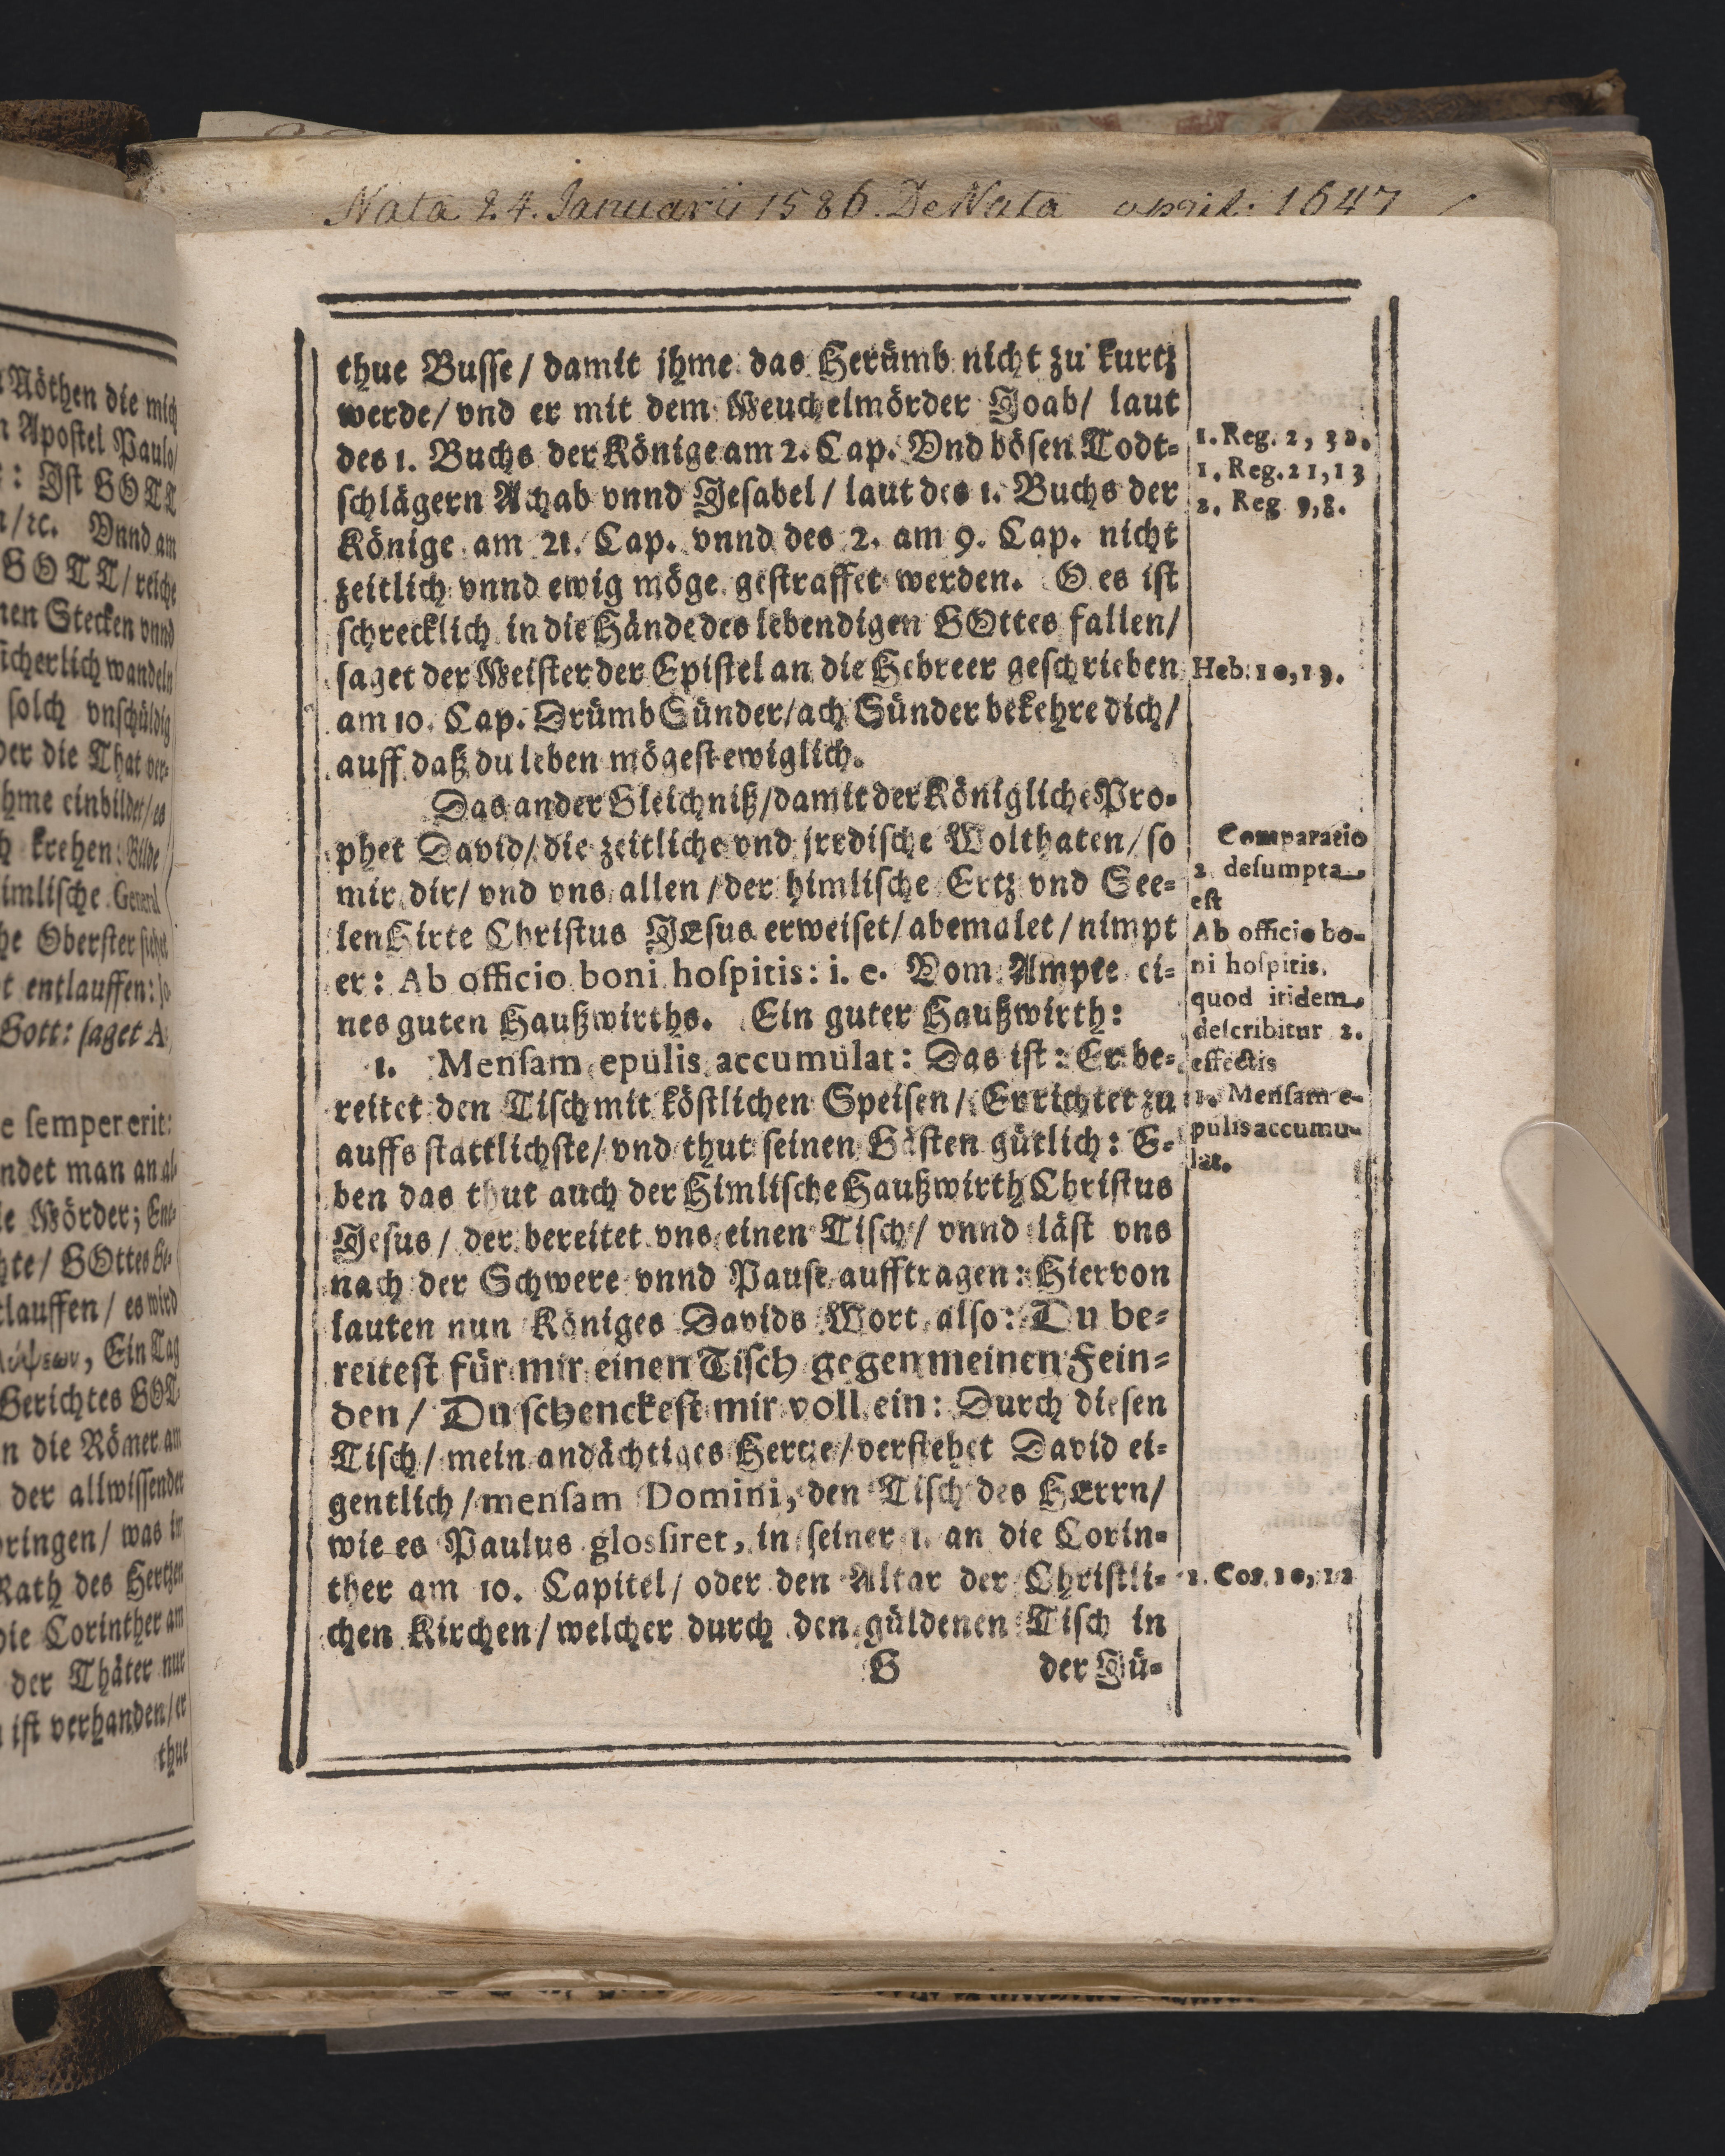 Nata 24. Januarii 1586. DeNata april: 1647
Nöthen die mich
Apostel Paulo/
: Ist GOTT
/ꝛc. Vnnd am
GOTT/reiche
nen Stecken vnnd
sicherlich wandeln
solch vnschüldig
der die That ver-
hme einbildet/es
krehen: Bilde
imlische General
he Oberster sihet
t entlauffen: so
Gott: saget A
e semper erit:
ndet man an al-
ie Mörder; Ent-
hte/ GOttes Ge-
tlauffen/ es wird
Ein Tag
Gerichtes GOT-
n die Römer am
der allwissender
bringen/ was im
Rath des Hertzen
die Corinther am
der Thäter nur
ist verhanden/er
thue
thue Busse/ damit jhme das Herümb nicht zu kurtz
werde/ vnd er mit dem Meuchelmörder Joab/ laut
des 1. Buchs der Könige am 2. Cap. Vnd bösen Todt-
schlägern Achab vnnd Jesabel/ laut des 1. Buchs der
Könige am 21. Cap. vnnd des 2. am 9. Cap. nicht
zeitlich vnnd ewig möge gestraffet werden. O es ist
schrecklich in die Hände des lebendigen GOttes fallen/
saget der Meister der Epistel an die Hebreer geschrieben
am 10. Cap. Drümb Sünder/ach Sünder bekehre dich/
auff daß du leben mögest ewiglich.
Das ander Gleichniß/damit der Königliche Pro-
phet David/ die zeitliche vnd jrrdische Wolthaten/ so
mir dir/ vnd vns allen/der himlische Ertz vnd See-
lenHirte Christus JEsus erweiset/abemalet/nimpt
er: Ab officio boni hospitis: i. e. Vom Ampte ei-
nes guten Haußwirths. Ein guter Haußwirth:
1. Mensam epulis accumulat: Das ist: Er be-
reitet den Tisch mit köstlichen Speisen/ Er richtet zu
auffs stattlichste/ vnd thut seinen Gästen gütlich: E-
ben das thut auch der Himlische Haußwirth Christus
Jesus/ der bereitet vns einen Tisch/ vnnd läst vns
nach der Schwere vnnd Pause aufftragen: Hiervon
lauten nun Königes Davids Wort also: Du be-
reitest für mir einen Tisch gegen meinen Fein-
den/ Du schenckest mir voll ein: Durch diesen
Tisch/ mein andächtiges Hertze/verstehet David ei-
gentlich/mensam Domini, den Tisch des HErrn/
wie es Paulus glossiret, in seiner 1. an die Corin-
ther am 10. Capitel/ oder den Altar der Christli-
chen Kirchen/welcher durch den güldenen Tisch in
G der Jü-
1. Reg. 2, 32.
1. Reg. 21, 13
2. Reg 9, 8.
Heb. 10, 19.
Comparatio
2 desumpta
est
Ab officio bo-
ni hospitis,
quod itidem
describitur 2.
effectis
1. Mensam e-
pulis accumu-
lat.
1. Cor. 10, 12